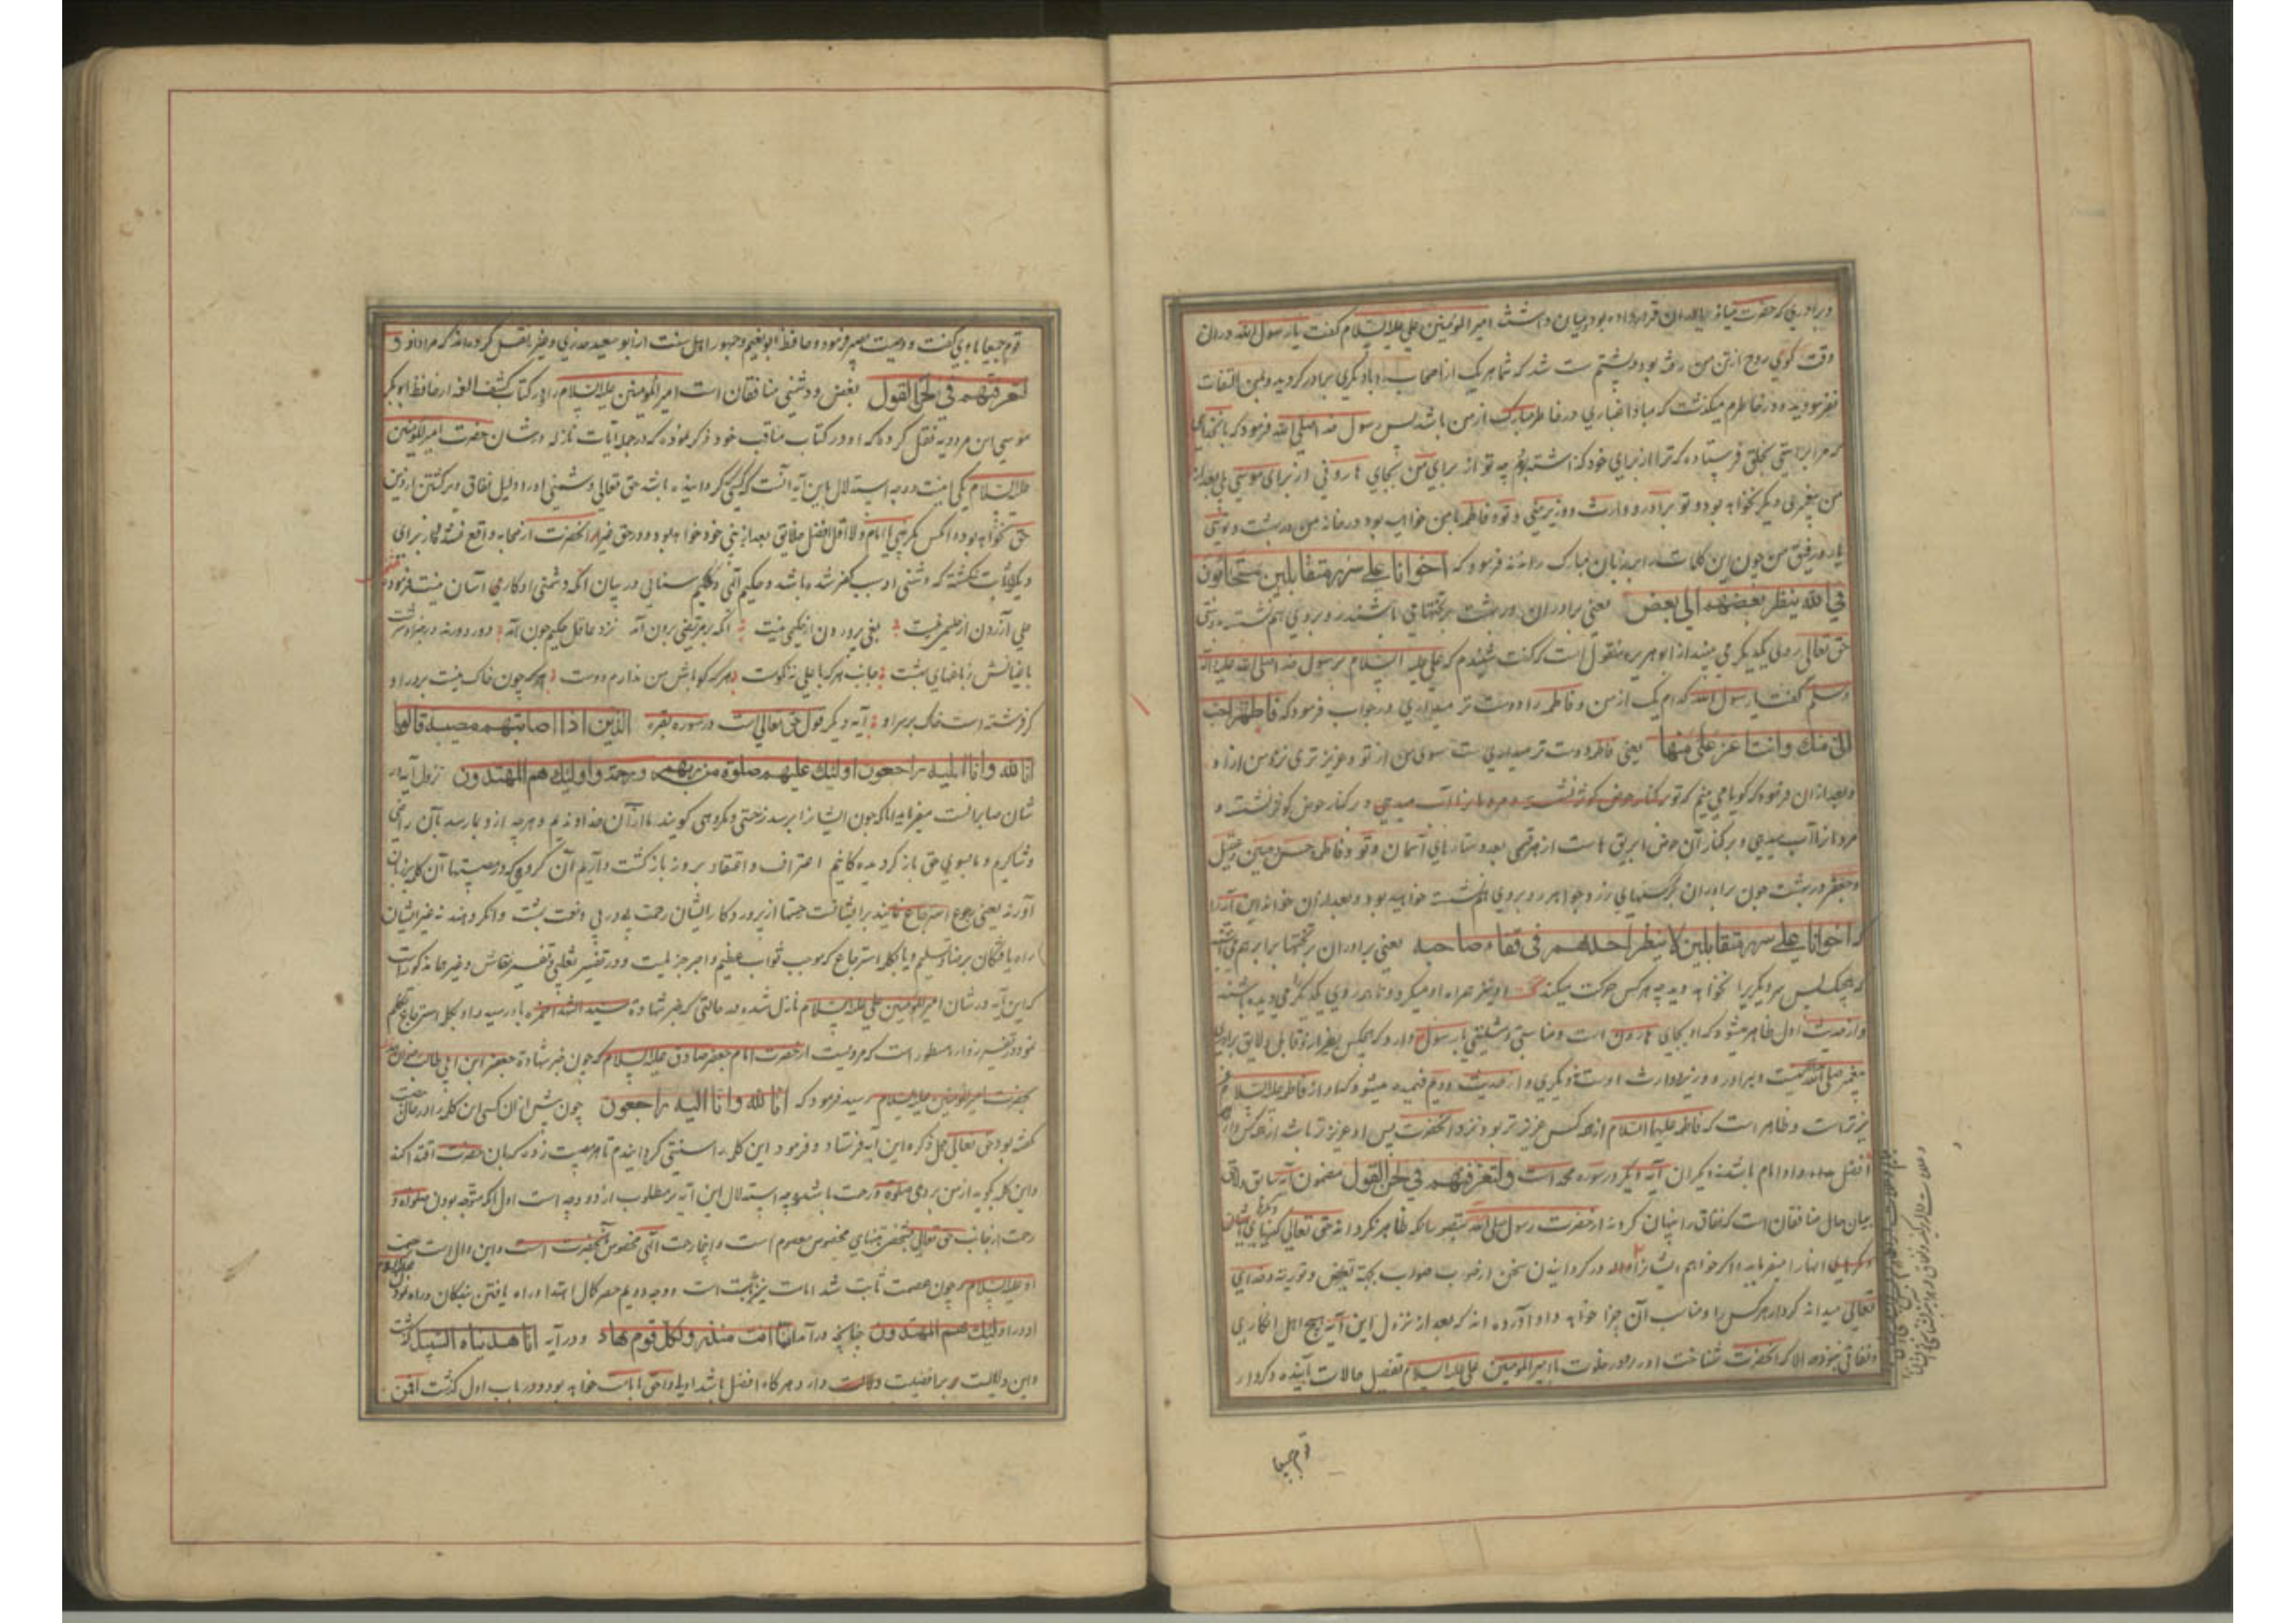 و برادری که حضرت میانه یاران قرار داده بود در میان داشت امیرالمومنین علی علیه السلام گفت یا رسول الله در ان
وقت گوی روح از تن من رفته بود و پشتم شکست که شما هر یک از اصحاب را با دیگری برادر کردید و بمن التفات
نفرمودید و در خاطرم میگذشت که مبادا غباری در خاطر مبارک از من باشد پس رسول خدا صلی الله فرمود که بانخدای
که مرا براستی بخلق فرستاده که ترا از برای خود گذاشته بودم چه تو از برای من بجای هارونی از برای موسی
من پیغمبری دیگر نخواهد بود و تو برادر و وارث و وزیر منی و تو و فاطمه با من خواهید بود در خانه من در بهشت و توئی
یار و رفیق من چون این کلمات را بر زبان مبارک راندند فرمود که اخوانا علی سرر متقابلین متحابون
فی الله ینظر بعضهم الی بعض یعنی برادران در بهشت بر تختهای باشند رو بروی هم نشسته
حق تعالی بروی یکدیگر می بینند از ابو هریره منقول است که گفت شنیدم که علی علیه السلام برسول خدا صلی الله علیه و اله
وسلم گفت یا رسول الله کدام یک از من و فاطمه را دوست تر میداری در جواب فرمود که فاطمة احب
الی منک وانت اعز علی منها یعنی فاطمه دوست تر است سوی من از تو و عزیز تری نزد من از او
و بعد از ان فرمود که گویا می بینم که تو بر کنار حوض کوثر نشسته و مردمان را آب میدهی و بر کنار حوض کوثر نشسته و
مردمان را آب میدهی و بر کنار آن حوض ابریق هاست از هر قسمی بعدد ستارهای آسمان و تو و فاطمه و حسن و حسین و عقیل
و جعفر در بهشت چون برادران بر کرسیهای زر و جواهر رو بروی هم نشسته خواهید بود و بعد از ان خواند این آیه را
که اخوانا علی سرر متقابلین لا ینظر احدهم فی قفاء صاحبه یعنی برادران بر تختها برابر هم
که هیچک پس سر دیگری را نخواهد دید چه هر کس حرکت میکند تخت او نیز همراه او میگردد تا همه روی یکدیگر را می دیده باشند
و از حدیث اول ظاهر میشود که او بجای هارون است و مناسبتی و شبیه باید رسول دارد که هیچکس بغیر از تو قابل و لایق برادری
پیغمبر صلی الله نیست و برادر و وزیر و وارث اوست نه دیگری و از حدیث دویم فهمیده میشود که او از فاطمه علیه السلام
نیز بهتر است و ظاهر است که فاطمه علیها السلام از همه کس عزیز تر بود نزد انحضرت پس او عزیز تر باشد از همه کس و از همه
افضل باشد و او امام باشد نه دیگران آیه دیگر در سوره محمد است ولتعرفنهم فی لحن القول مضمون آیه سابق و لاحق
بیان حال منافقان است که نفاق را پنهان کردند از حضرت رسول صلی الله بتصور انکه ظاهر نگرداند حق تعالی کینهای ایشان
تعالی میداند کردار هر کس را و مناسب آن جزا خواهد داد و آورده اند که بعد از نزول این آیه هیچ اهل انکاری
و نفاقی نبود الا که انحضرت شناخت او را و در خلوت با امیرالمومنین علی علیه السلام تفصیل حالات آینده و کردار
قوم جمیعا
قوم جمیعا با وی گفت و وصیت بصبر فرمود و حافظ ابو نعیم و جمهور اهل سنت از ابو سعید خدری و غیره نقل کرده اند که مراد از
لتعرفنهم فی لحن القول بغض و دشمنی منافقان است امیرالمومنین علیه السلام را و در کتاب کشف الغمه از حافظ ابوبکر
موسی ابن مردویه نقل کرده که او در کتاب مناقب خود ذکر نموده که در جمله آیات نازله در شان حضرت امیرالمومنین
علیه السلام یکی اینست وجه استدلال باین آیه انست که کسی که گردانیده باشد حق تعالی دشمنی او را دلیل نفاق و برگشتن از دین
حق نخواهد بود آنکس مگر نبی یا امام و لا اقل افضل خلایق بعد از نبی خود خواهد بود و در حق غیر انحضرت از صحابه واقع نشده و از برای
دیگری ثابت نگشته که دشمنی او سبب کفر شده باشد و حکیم الهی حکیم سنائی در بیان انکه دشمنی او کار آسان نیست فرموده
علی آزردن از حلیمی نیست بغی پروردن از حکیمی نیست انکه بر مرتضی برون آمد نزد عاقل حکیم چون آمد
جانب هر که با علی نه نکوست هر که گو باش من ندارم دوست هر که چون خاک نیست بر در او
گر فرشته است خاک بر سر او آیه دیگر قول حق تعالی است در سوره بقره الذین اذا اصابتهم مصیبة قالوا
انا لله وانا الیه راجعون اولئک علیهم صلوة من ربهم ورحمة واولئک هم المهتدون نزول آیه در
شان صابرانست میفرماید انانکه چون ایشان را برسد زحمتی و مکروهی گویند ما از آن خداوندیم و هرچه از و بما رسد بآن راضی
و شاکریم و ما بسوی حق باز گردیده گانیم اعتراف و اعتقاد بروز بازگشت داریم آن گروهی که در مصیبتها آن کلمه بر زبان
آورند یعنی رجوع استرجاع نمایند برایشانست حتما از پروردگار ایشان رحمت پی در پی و نعمت بهشت و انگروهند نه غیر ایشان
راه یافتگان برضا و تسلیم و یا بکلمه استرجاع که موجب ثواب عظیم و اجر جزیلیست و در تفسیر ثعلبی و تفسیر نقاش و غیرها مذکور است
که این آیه در شان امیرالمومنین علی علیه السلام نازل شده در حالتی که خبر شهادة سید الشهدا حمزه باو رسید و او بکلمه استرجاع تکلم
نمود و در تفسیر زوار مسطور است که مرویست از حضرت امام جعفر صادق علیه السلام که چون خبر شهادة جعفر ابن ابی طالب رضوان الله
بحضرت امیرالمومنین علیه السلام رسید فرمود که انا لله وانا الیه راجعون چون پیش از ان کسی این کلمه را در حال مصیبت
نگفته بود حق تعالی جل ذکره این آیه فرستاد و فرمود این کلمه را سنتی گردانیدم تا هر مصیبت زده که بان حضرت اقتدا کند
و این کلمه گوید از من بر وی صلوة و رحمت باشد وجه استدلال این آیه بر مطلوب از دو وجه است اول انکه متوجه بودن صلوة و
رحمت از جانب حق تعالی بشخصی بتنهای مخصوص معصوم است و اینجا رحمت الهی مخصوص آنحضرت است و این دال است بر عصمت
او علیه السلام و چون عصمت ثابت شد امامت نیز ثابت است و وجه دویم حصر کمال اهتدا و راه یافتن بندگان و راه نمودن
او در اولئک هم المهتدون چنانچه در آیه انما انت منذر ولکل قوم هاد و در آیه انا هدیناه السبیل گذشت
و این دلالت بر افضلیت دلالت دارد و هرگاه افضل باشد اولی و احق بامامت خواهد بود و در باب اول گذشت